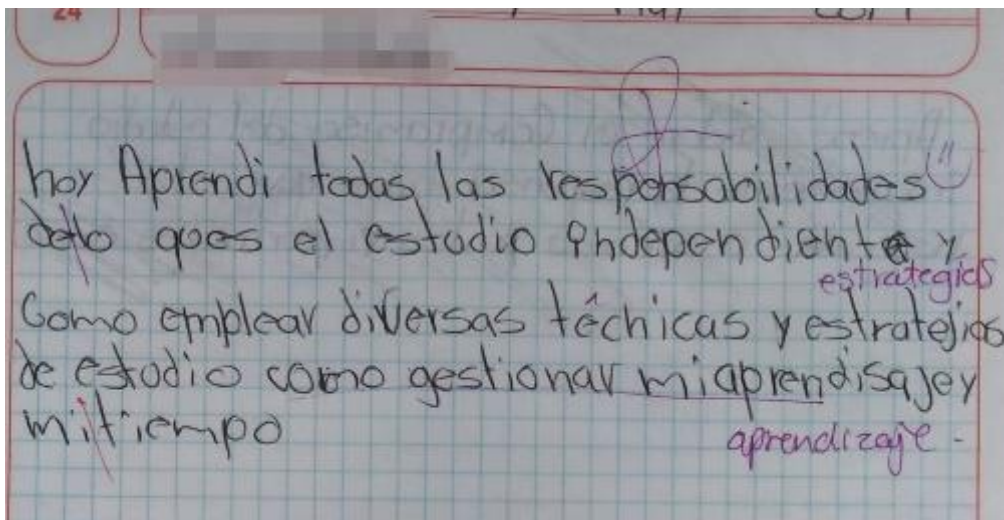 24
hoy Aprendi todas las responsabilidades
delo ques el estudio independiente y
estrategias
Como emplear diversas técnicas y estratejias
de estudio como gestionar miaprendisaje y
mitiempo
aprendizaje.